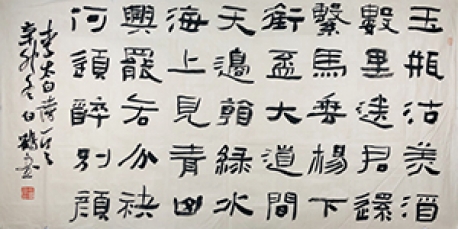 玉瓶沽美酒
數里送君還
繫馬垂楊下
銜盃大道間
天邊看綠水
海上見青山
興罷各分袂
何須醉別顏
李太白詩一首